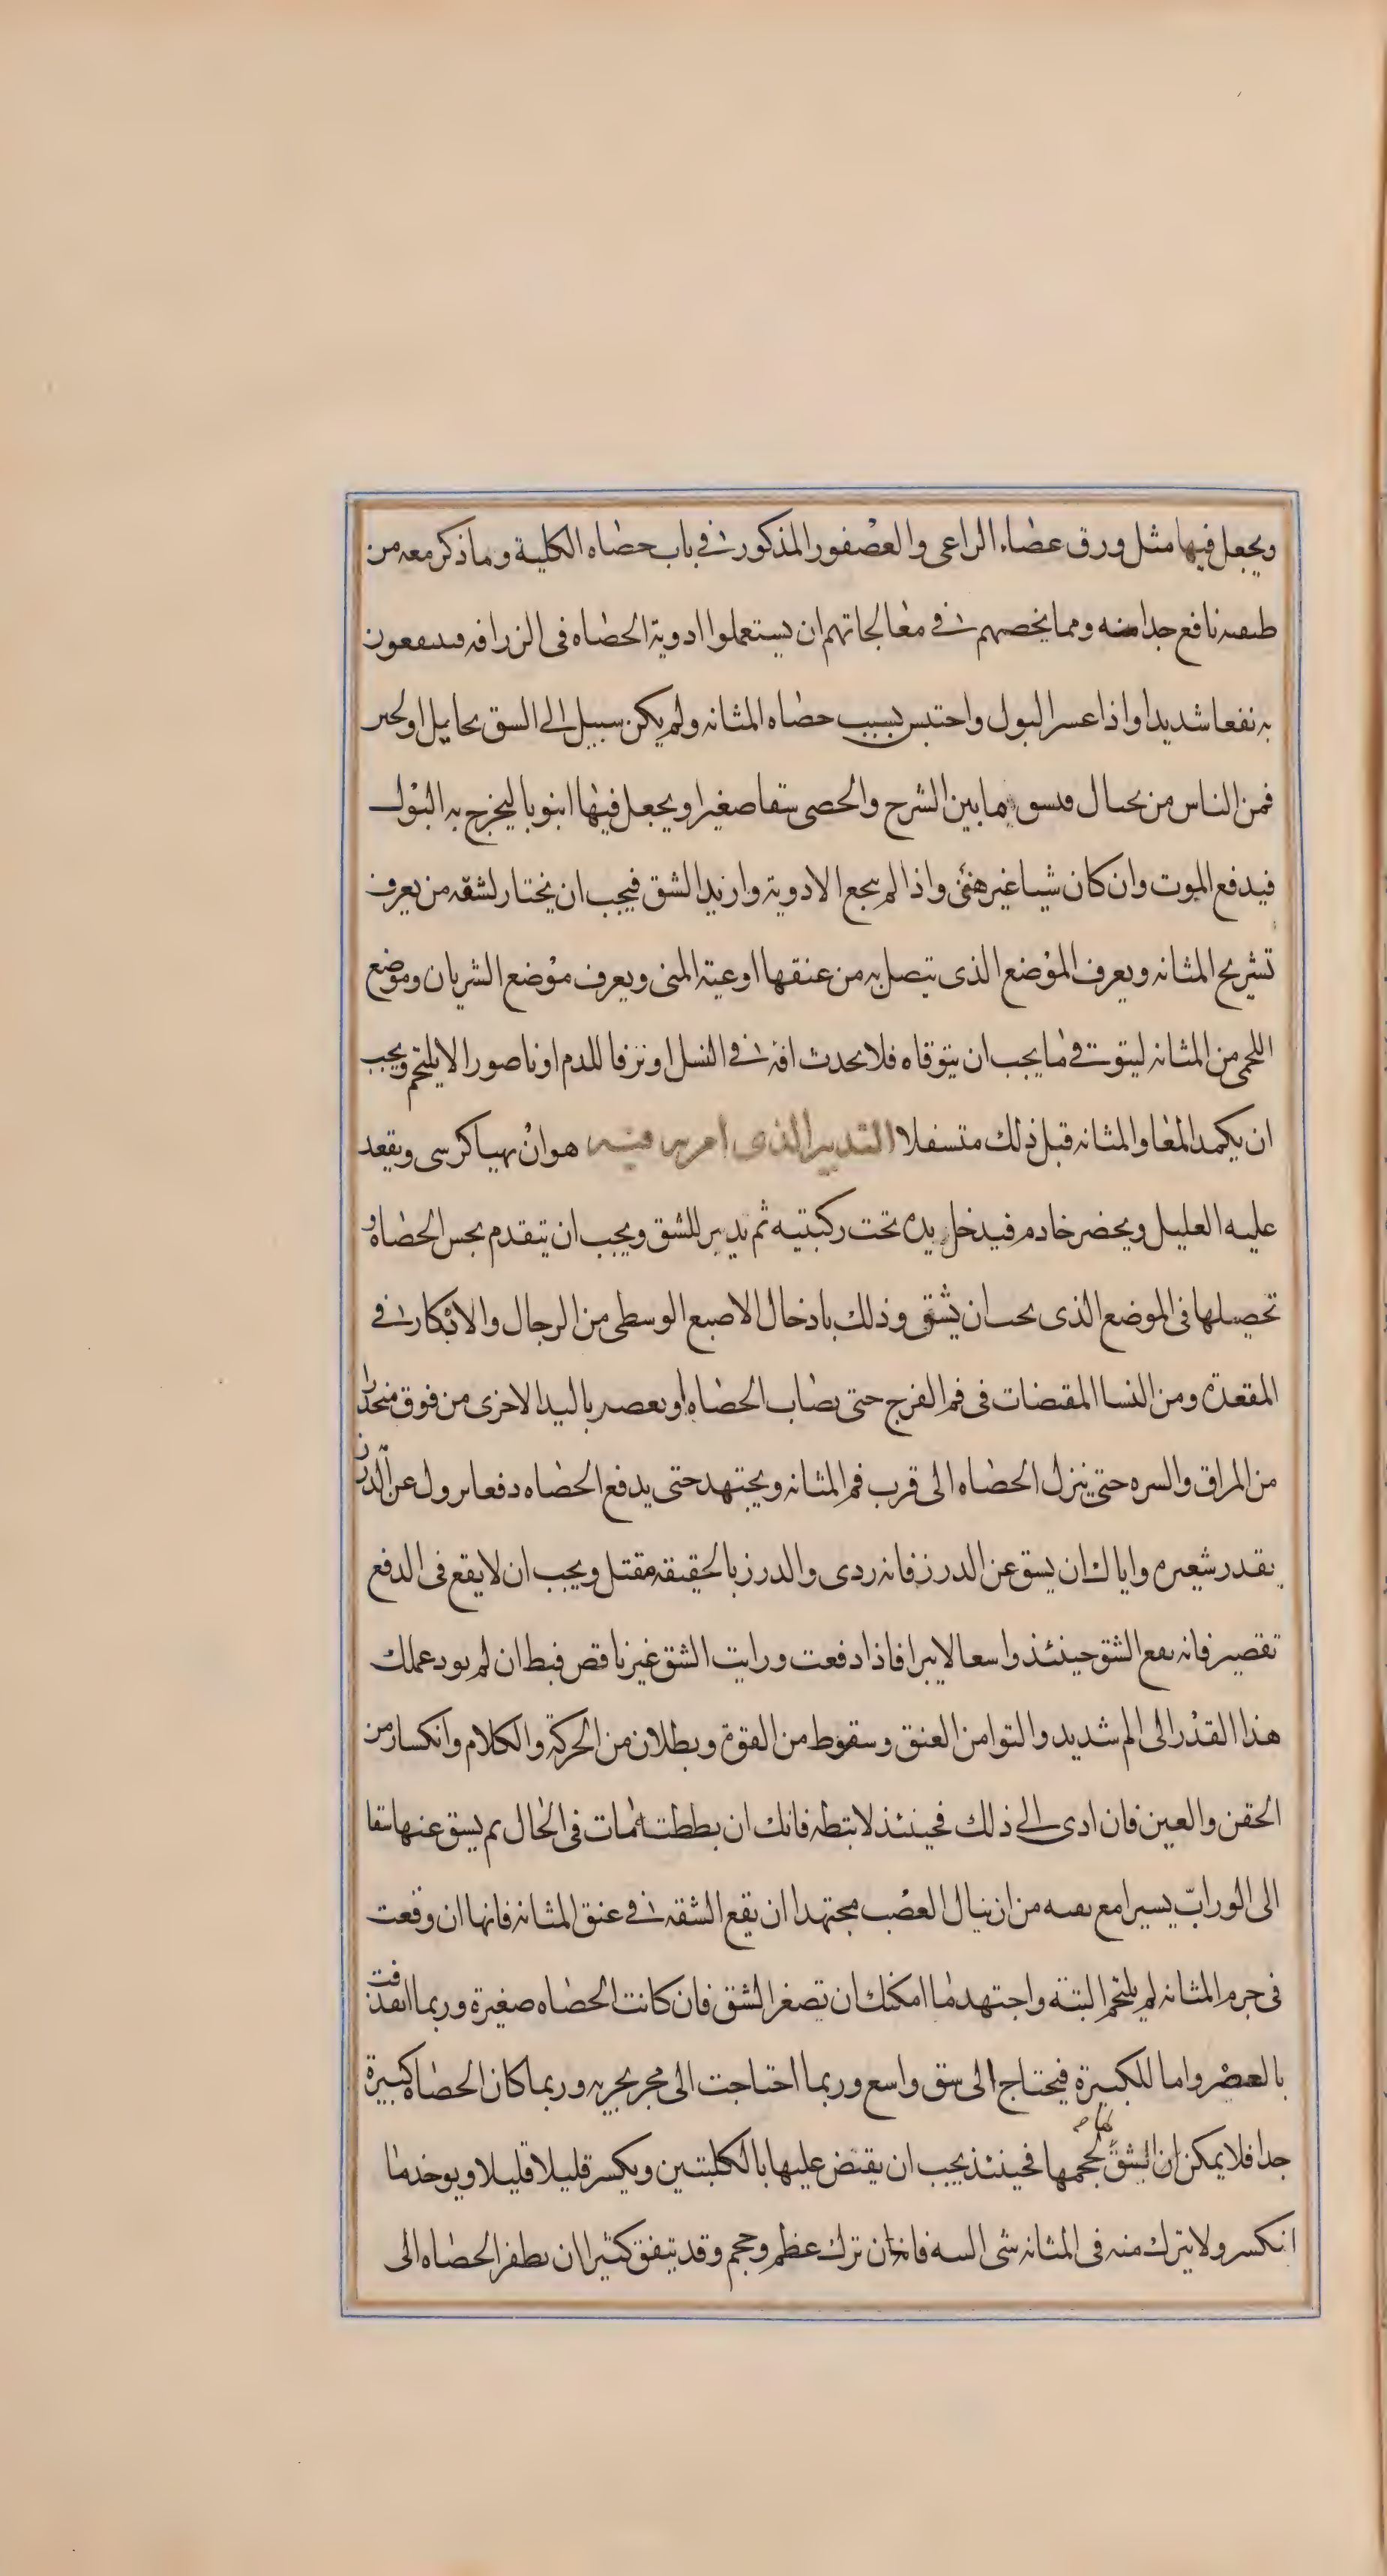 ويجعل فيها مثل ورق عصاء الراعى والعصفور المذكور فى باب حصاه الكلية وما ذكر معه من
طبقته نافع جدا منه ومما يخصهم فى معالجاتهم ان يستعملوا ادوية الحصاه فى الزراقه فينتفعون
به نفعا شديدا واذا عسر البول واحتبس بسبب حصاه المثانه ولم يكن سبيل الى الشق لحايل او لجبن
فمن الناس من يحتال فيشق ما بين الشرج والخصى شقا صغيرا ويجعل فيها انبوبا ليخرج به البول
فيدفع الموت وان كان شيا غير هنئ واذا لم ينجع الادوية واريد الشق فيجب ان يختار لشقه من يعرف
تشريح المثانه ويعرف الموضع الذى يتصل به من عنقها اوعية المنى ويعرف موضع الشريان وموضع
اللحمى من المثانه ليتوقى ما يجب ان يتوقاه فلا يحدث افة فى النسل او نزفا للدم او ناصورا لا يلتحم ويجب
ان يكمد المعا والمثانه قبل ذلك متسفلا التدبير الذى امر به فيه هو ان يهيا كرسى ويقعد
عليه العليل ويحضر خادم فيدخل يده تحت ركبتيه ثم يدبر للشق ويجب ان يتقدم بجس الحصاه و
تحصيلها فى الموضع الذى يجب ان يشق وذلك بادخال الاصبع الوسطى من الرجال والابكار فى
المقعدة ومن النسا المقتضات فى فم الفرج حتى يصاب الحصاه او يعصر باليد الاخرى من فوق منحدرا
من المراق والسره حتى ينزل الحصاه الى قرب فم المثانه ويجتهد حتى يدفع الحصاه دفعا يزول عن الدرز
بقدر شعيره واياك ان يشق عن الدرز فانه ردى والدرز بالحقيقه مقتل ويجب ان لا يقع فى الدفع
تقصير فانه يقع الشق حينئذ واسعا لا يبرا فاذا دفعت ورايت الشق غير ناقص فبط ان لم يود عملك
هذا القدر الى الم شديد والتوا من العنق وسقوط من القوة وبطلان من الحركة والكلام وانكسار من
الجفن والعين فان ادى الى ذلك فحينئذ لا تبطه فانك ان بططت مات فى الحال ثم يشق عنها شقا
الى الوراب يسيرا مع تقيه من ان ينال العصب مجتهدا ان يقع الشقه فى عنق المثانه فانها ان وقعت
فى جرم المثانه لم يلتحم البتة واجتهد ما امكنك ان تصغر الشق فان كانت الحصاه صغيرة وربما انقذفت
بالعصر واما للكبيرة فيحتاج الى شق واسع وربما احتاجت الى مجر يجر به وربما كان الحصاه كبيرة
جدا فلا يمكن ان يشق لحجمها فحينئذ يجب ان يقبض عليها بالكلبتين ويكسر قليلا قليلا ويوخذ ما
انكسر ولا يترك منه فى المثانه شى البته فانه ان ترك عظم وحجم وقد يتفق كثيرا ان يطفر الحصاه الى